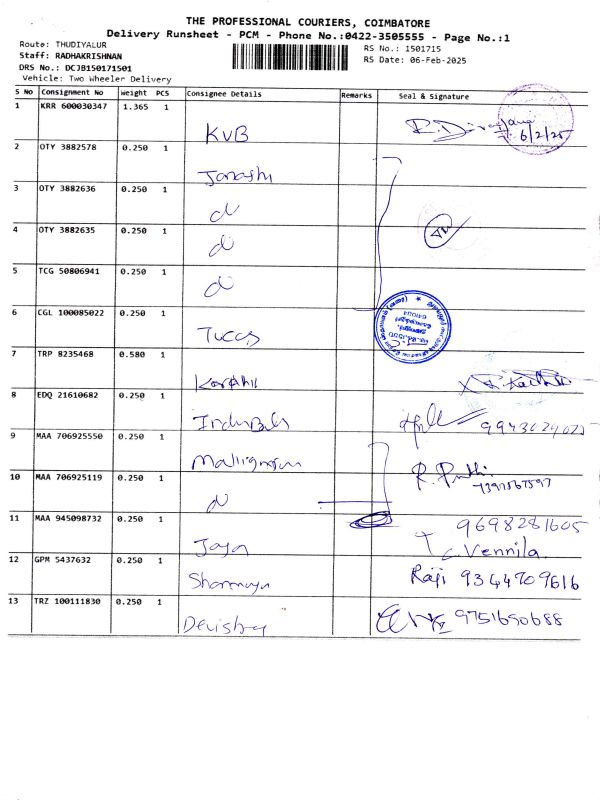 THE PROFESSIONAL COURIERS, COIMBATORE
Delivery Runsheet - PCM - Phone No.:0422-3505555 - Page No.:1
Route: THUDIYALUR
RS No.: 1501715
Staff: RADHAKRISHNAN
RS Date: 06-Feb-2025
DRS No.: DCJB150171501
Vehicle: Two Wheeler Delivery
S No Consignment No Weight PCS Consignee Details Remarks Seal & Signature
1 KRR 600030347 1.365 1 KVB 6/2/25
2 OTY 3882578 0.250 1
3 OTY 3882636 0.250 1 d
4 OTY 3882635 0.250 1 d
5 TCG 50806941 0.250 1 d
6 CGL 100085022 0.250 1 TUCCS
7 TRP 8235468 0.580 1
8 EDQ 21610682 0.250 1
9 MAA 706925550 0.250 1
10 MAA 706925119 0.250 1 d
11 MAA 945098732 0.250 1 Jaya 9698281605
T.C. Vennila
12 GPM 5437632 0.250 1 Raji 9344709616
13 TRZ 100111830 0.250 1 9751690688